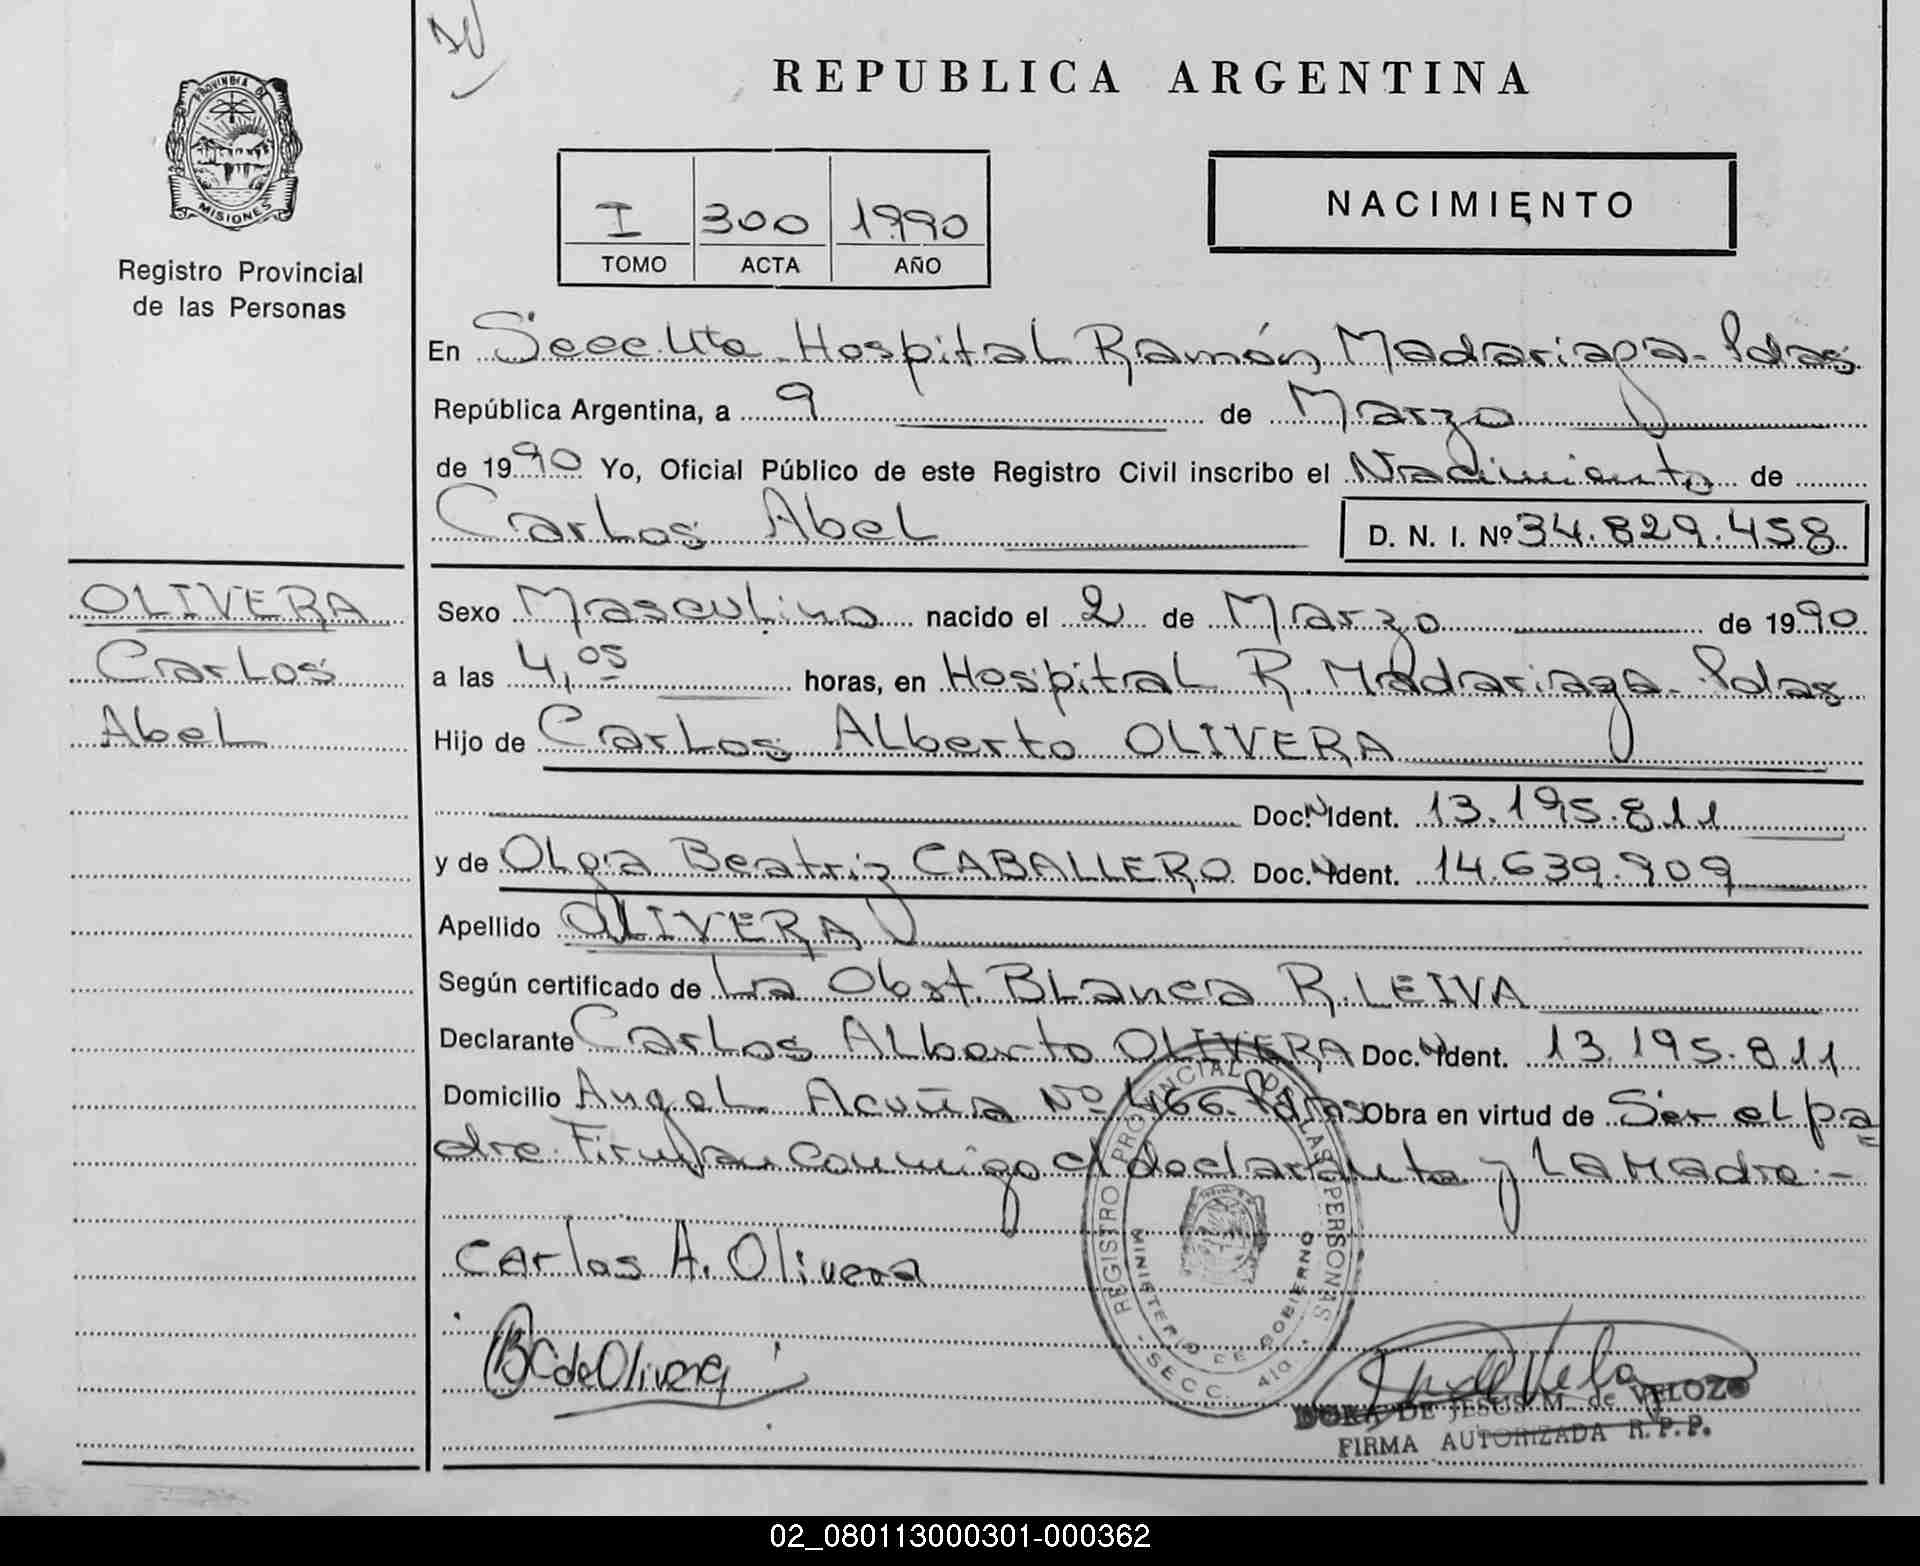 REPUBLICA ARGENTINA
PROVINCIA DE
MISIONES
Registro Provincial
de las Personas
I 300 1990
TOMO ACTA AÑO
NACIMIENTO
En Secc. 4ta Hospital Ramón Madariaga - Pdas
República Argentina, a 9 de Marzo
de 1990 Yo, Oficial Público de este Registro Civil inscribo el Nacimiento de
Carlos Abel D. N. I. Nº 34.829.458
OLIVERA
Carlos
Abel
Sexo Masculino nacido el 2 de Marzo de 1990
a las 4,05 horas, en Hospital R. Madariaga - Pdas
Hijo de Carlos Alberto OLIVERA
Doc. N Ident. 13.195.811
y de Olga Beatriz CABALLERO Doc. N Ident. 14.639.909
Apellido OLIVERA
Según certificado de La Obst. Blanca R. LEIVA
Declarante Carlos Alberto OLIVERA Doc. N Ident. 13.195.811
Domicilio Angel Acuña Nº 466 - Pdas Obra en virtud de Ser el pa
dre. Firman conmigo el declarante y La Madre. -
Carlos A. Olivera
B C de Olivera
REGISTRO PROVINCIAL DE LAS PERSONAS
MINISTERIO DE GOBIERNO
SECC. 4ta
DORA DE JESUS M. de VELOZO
FIRMA AUTORIZADA R. P. P.
02_080113000301-000362